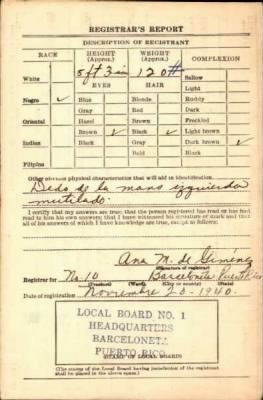 REGISTRAR'S REPORT
DESCRIPTION OF REGISTRANT
RACE
HEIGHT (Approx.)
WEIGHT (Approx.)
COMPLEXION
White
5 ft 3 in
120#
Sallow
EYES
HAIR
Light
Negro ✓
Blue
Blonde
Ruddy
Gray
Red
Dark
Oriental
Hazel
Brown
Freckled
Brown ✓
Black ✓
Light brown
Indian
Black
Gray
Dark brown ✓
Bald
Black
Filipino
Other obvious physical characteristics that will aid in identification
Dedo de la mano izquierda
mutilado.
I certify that my answers are true; that the person registered has read or has had
read to him his own answers; that I have witnessed his signature or mark and that
all of his answers of which I have knowledge are true, except as follows:
Ana M. de Giménez
(Signature of registrar)
Registrar for No. 10 Barceloneta Puerto Rico
(Precinct) (Ward) (City or county) (State)
Date of registration Noviembre 20-1940.
LOCAL BOARD NO. 1
HEADQUARTERS
BARCELONETA
PUERTO RICO
(STAMP OF LOCAL BOARD)
(The stamp of the Local Board having jurisdiction of the registrant
shall be placed in the above space.)